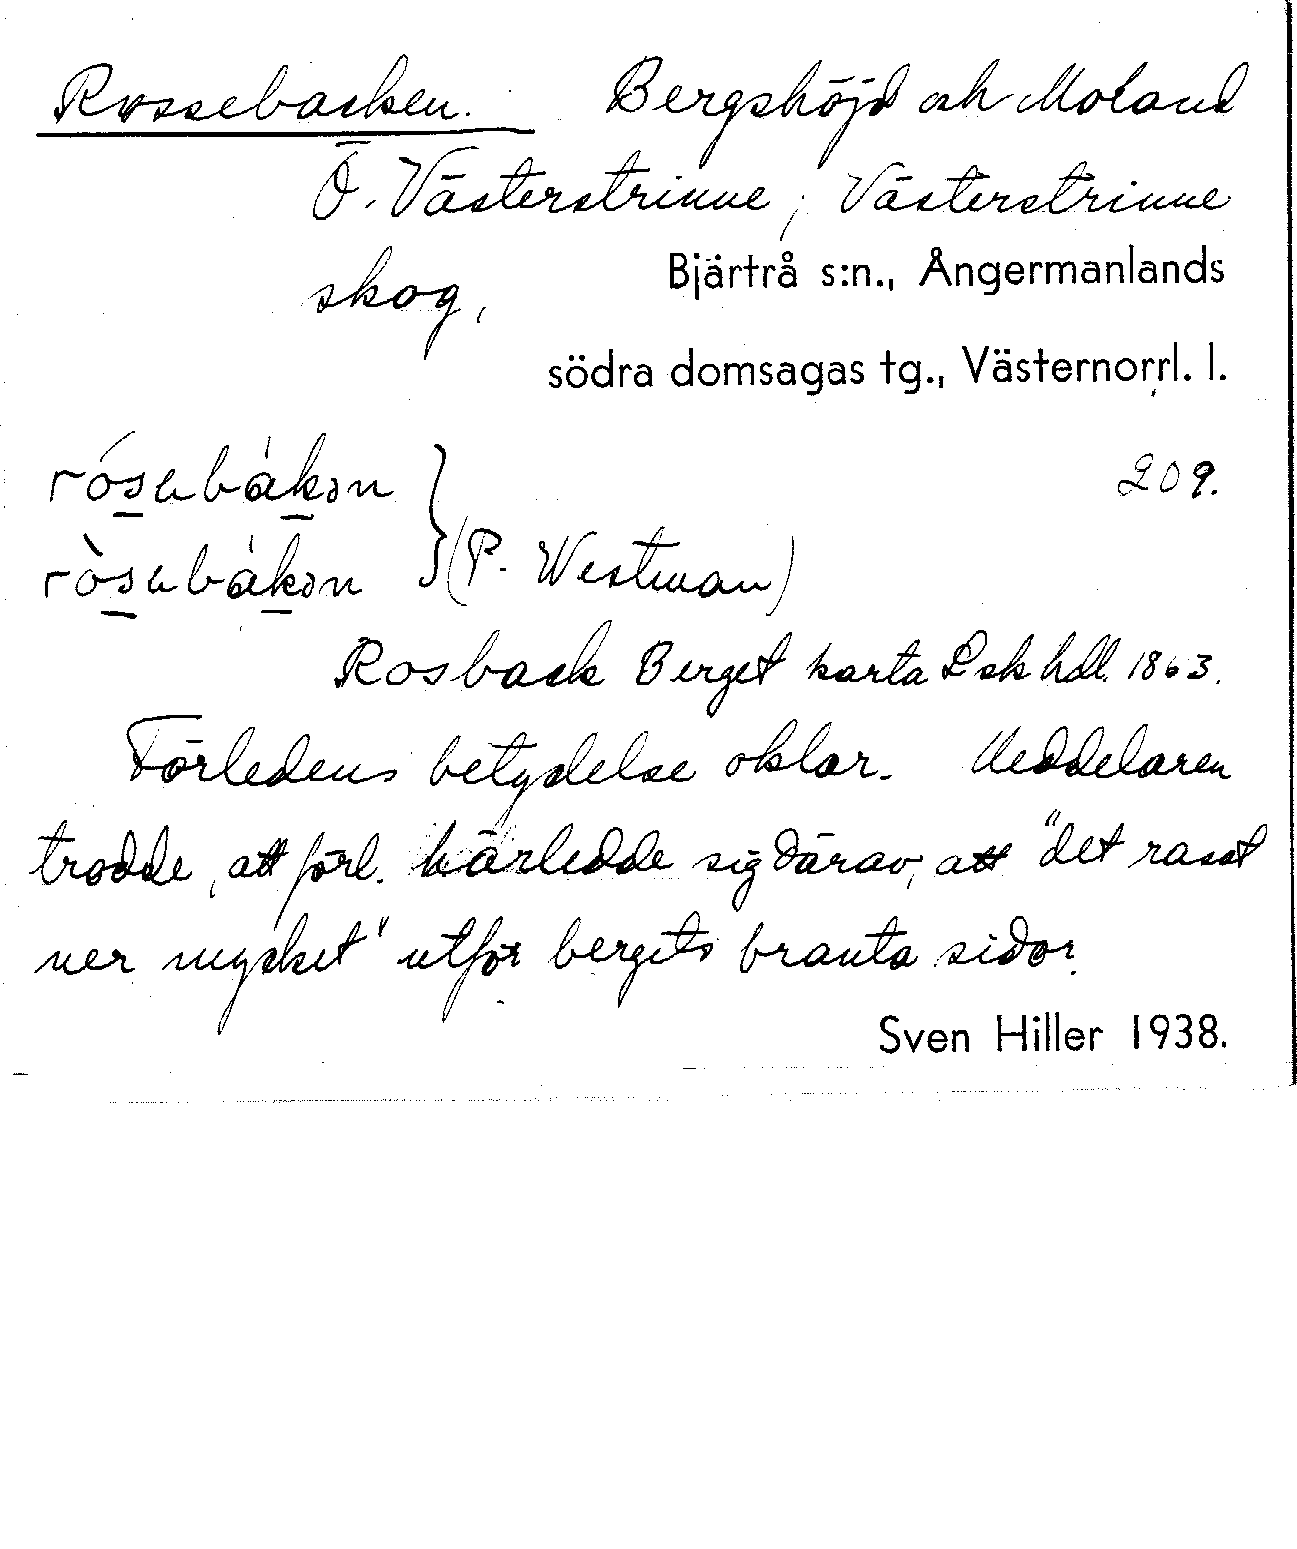 Rossebacken. Bergshöjd och Moland
Ö. Västerstrinne, Västerstrinne
skog, Bjärtrå s:n., Ångermanlands
södra domsagas tg., Västernorrl. l.
209.
(P. Westman)
Rosback Berget karta Lsk hdl. 1863.
Förledens betydelse oklar. Meddelaren
trodde, att förl. härledde sig därav, att "det rasat
ner mycket" utför bergets branta sidor.
Sven Hiller 1938.